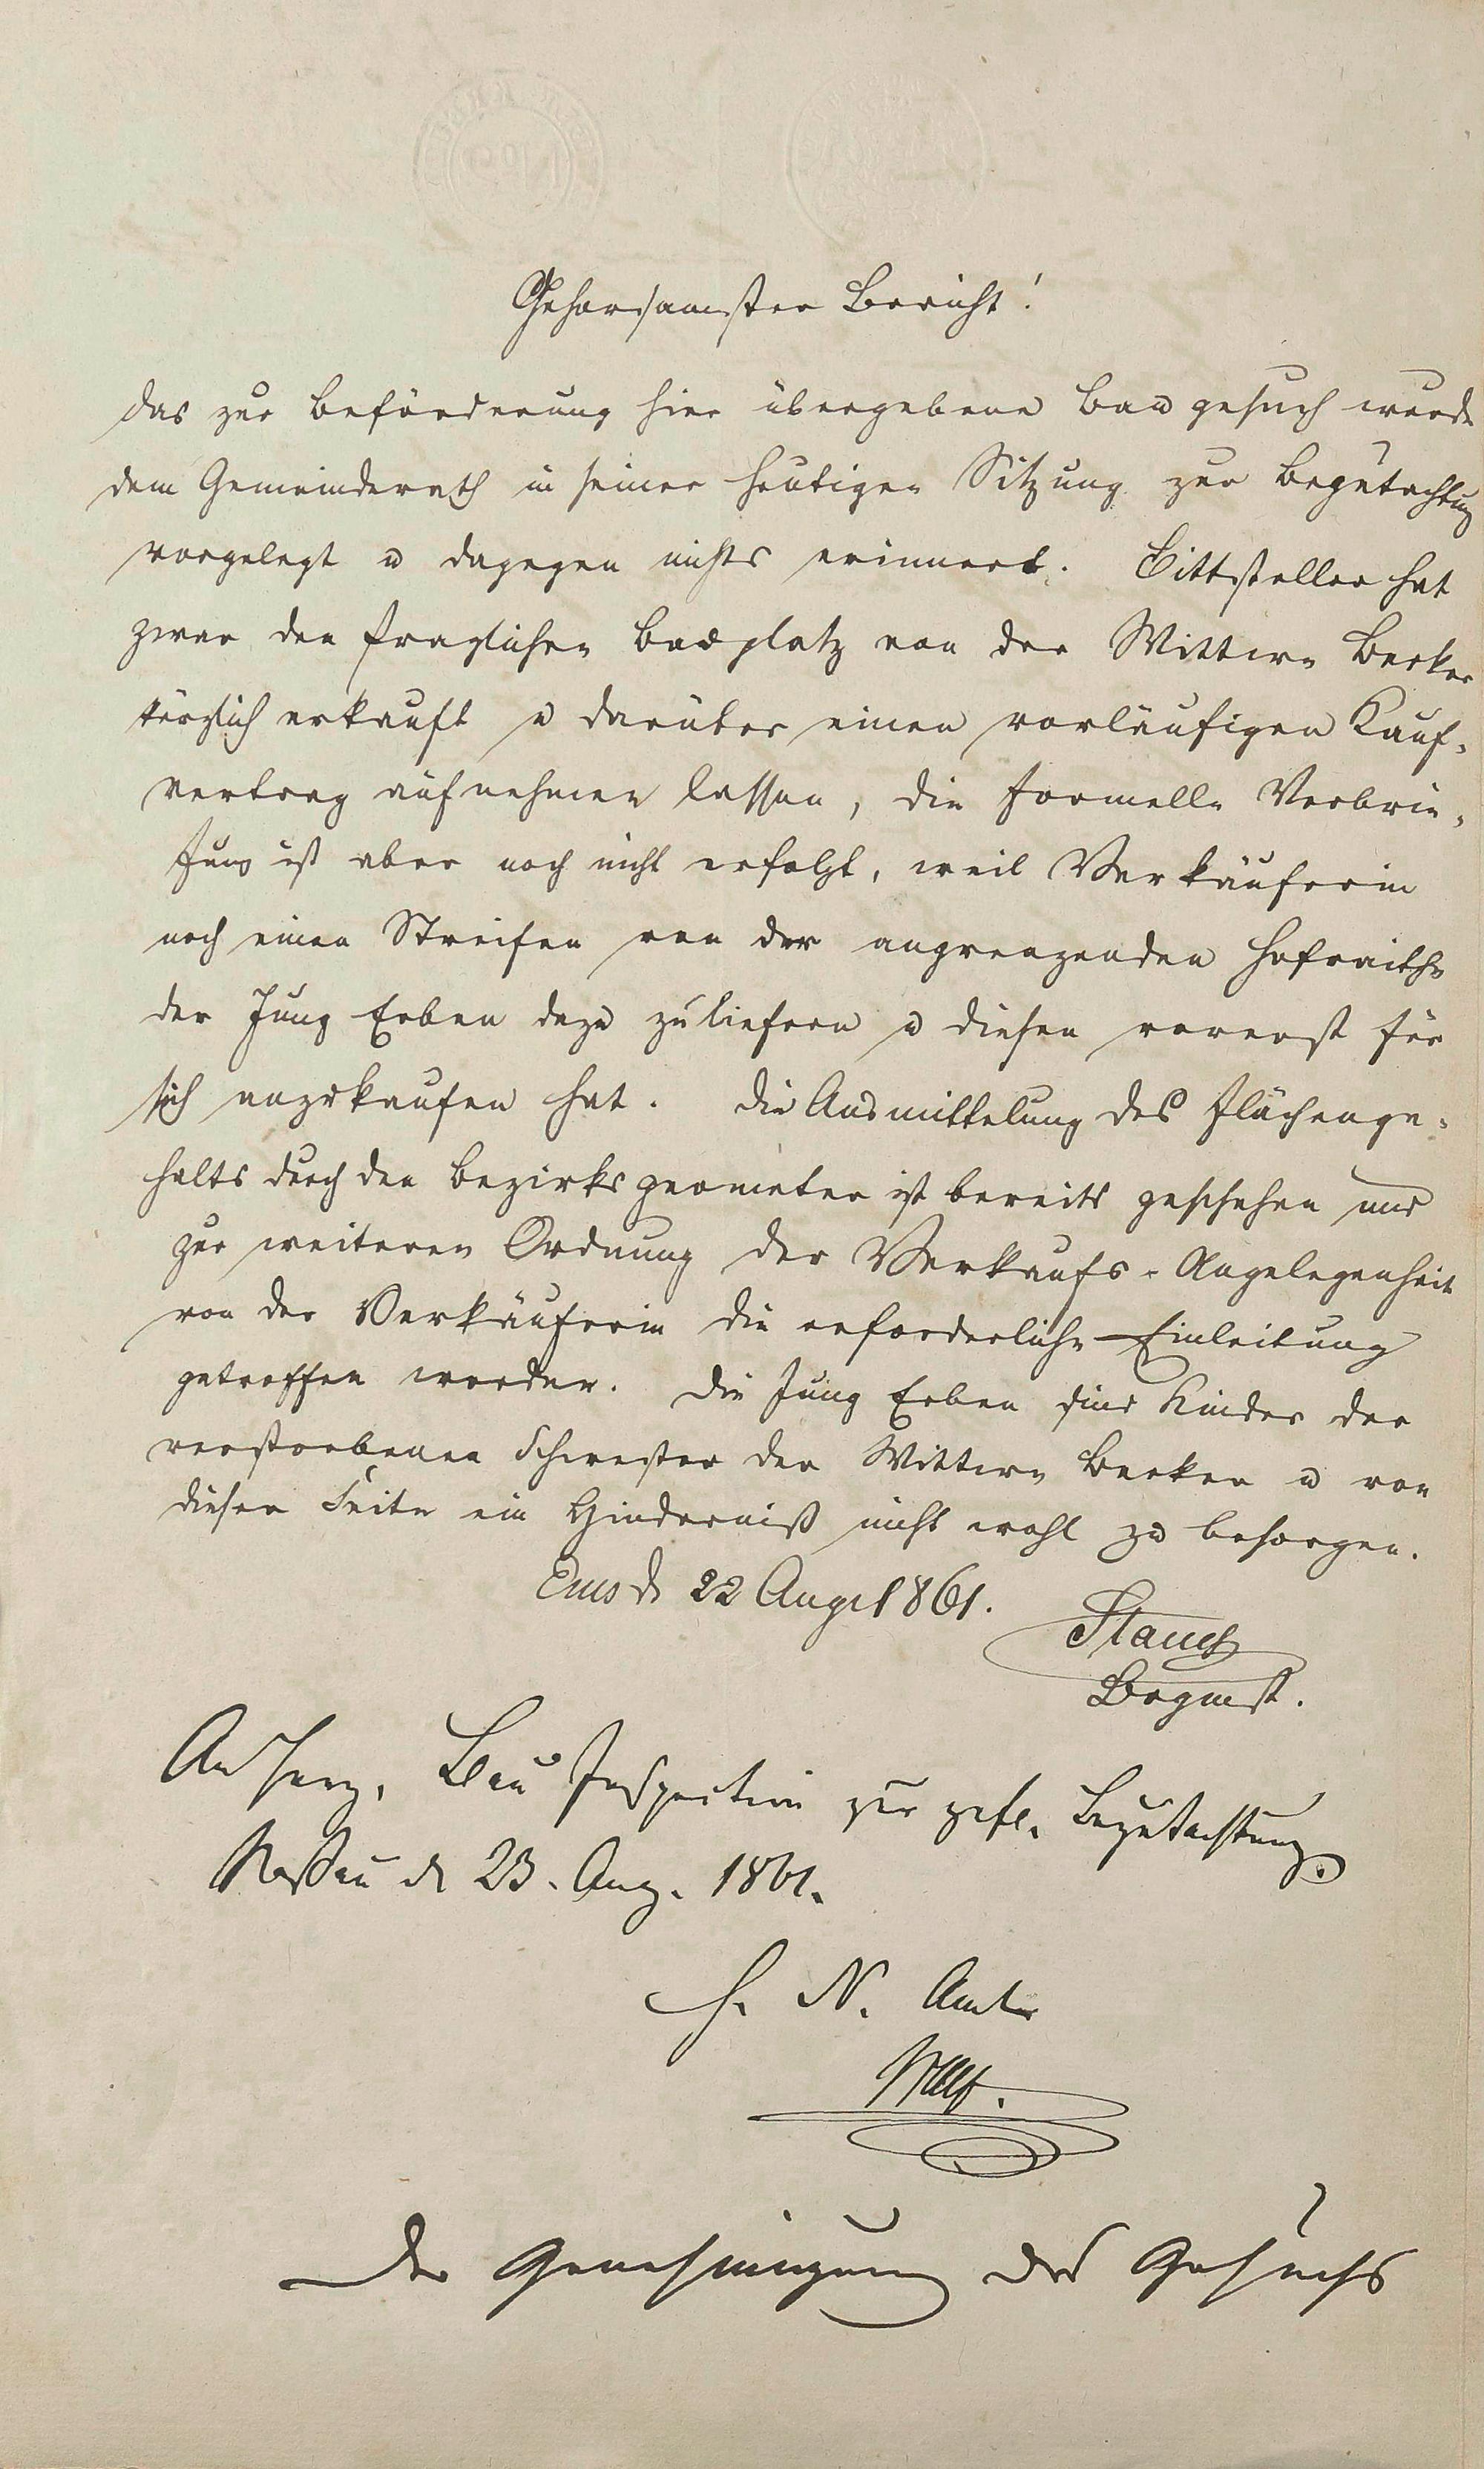 Gehorsamster Bericht!
Das zur Beförderung hier übergebene Bau gesuch wurde
dem Gemeinderath in seiner heutigen Sitzung zur Begutachtung
vorgelegt u dagegen nichts erinnert. Bittsteller hat
zwar den fraglichen Bauplatz von der Wittwe Becker
kürzlich erkauft u darüber einen vorläufigen Kauf-
vertrag aufnehmen lassen, die formelle Verbrie-
fung ist aber noch nicht erfolgt, weil Verkäuferin
noch einen Streifen von der angrenzenden Hofraithe
der Jung Erben dazu zuliefern u diesen vorerst für
sich anzukaufen hat. Die Ausmittelung des Flächenge-
halts durch den Bezirksgeometer ist bereits geschehen und
zur weiteren Ordnung der Verkaufs-Angelegenheit
von der Verkäuferin die erforderliche Einleitung
getroffen worden. Die Jung Erben sind Kinder der
verstorbenen Schwester der Wittwe Becker u von
dieser Seite ein Hinderniß nicht wohl zu besorgen.
Ems d 22 Aug 1861.
Stauch
Brgmst.
An Herz. Bau Inspection zur gefl. Begutachtung.
Nassau d 23. Aug. 1861.
H. N. Amt
Der Genehmigung des Gesuchs